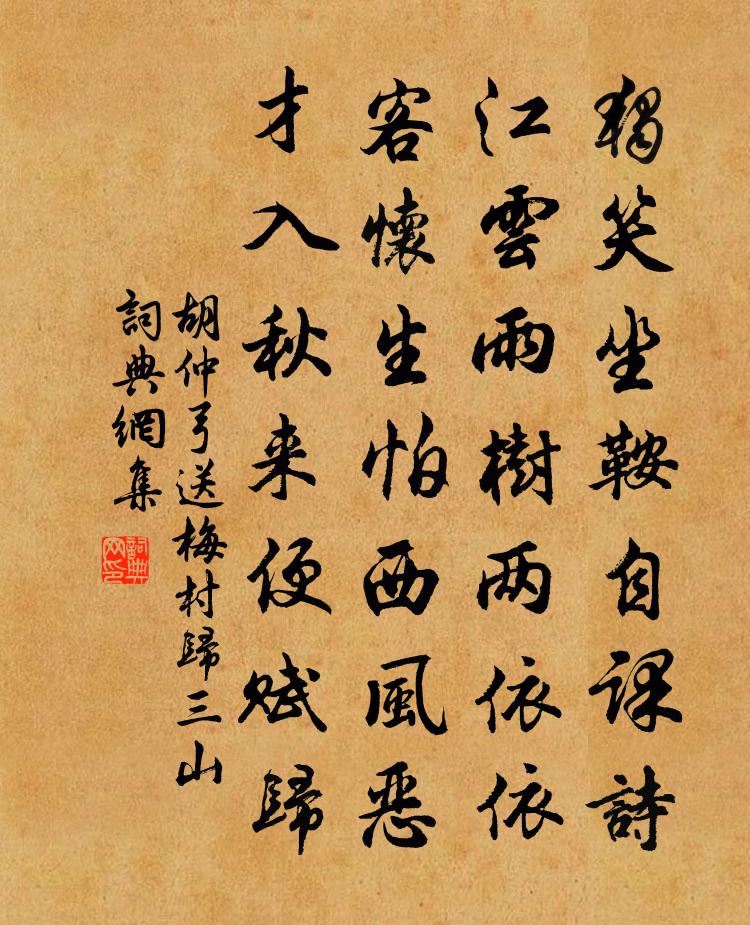 獨笑坐鞍自課詩
江雲雨樹兩依依
客懷生怕西風惡
才入秋来便賦歸
胡仲弓送梅村歸三山
詞典網集
詞典网印